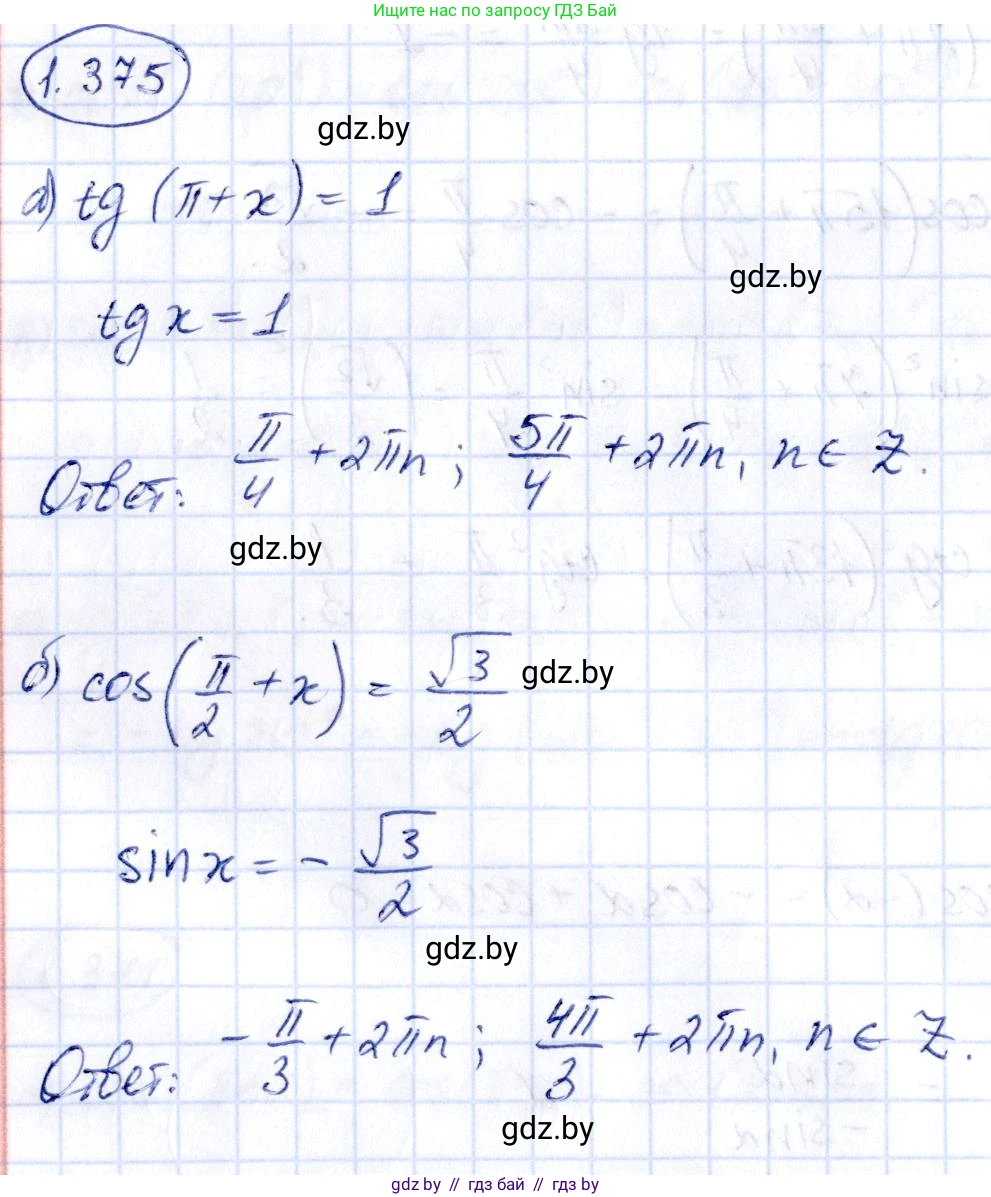 Ищите нас по запросу ГДЗ Бай
1.375
gdz.by
а) tg (π + x) = 1
gdz.by
tg x = 1
Ответ: π/4 + 2πn ; 5π/4 + 2πn, n ∈ Z.
gdz.by
б) cos(π/2 + x) = √3/2
gdz.by
sin x = - √3/2
gdz.by
Ответ: - π/3 + 2πn ; 4π/3 + 2πn, n ∈ Z.
gdz.by
gdz.by // гдз бай // gdz.by